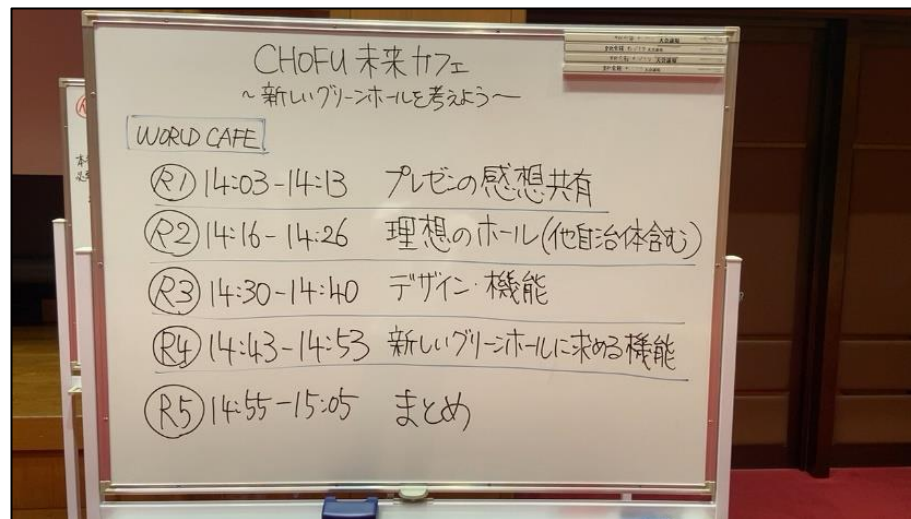 CHOFU 未来カフェ
～新しいグリーンホールを考えよう～
WORLD CAFE
R1 14:03-14:13 プレゼンの感想共有
R2 14:16-14:26 理想のホール(他自治体含む)
R3 14:30-14:40 デザイン・機能
R4 14:43-14:53 新しいグリーンホールに求める機能
R5 14:55-15:05 まとめ